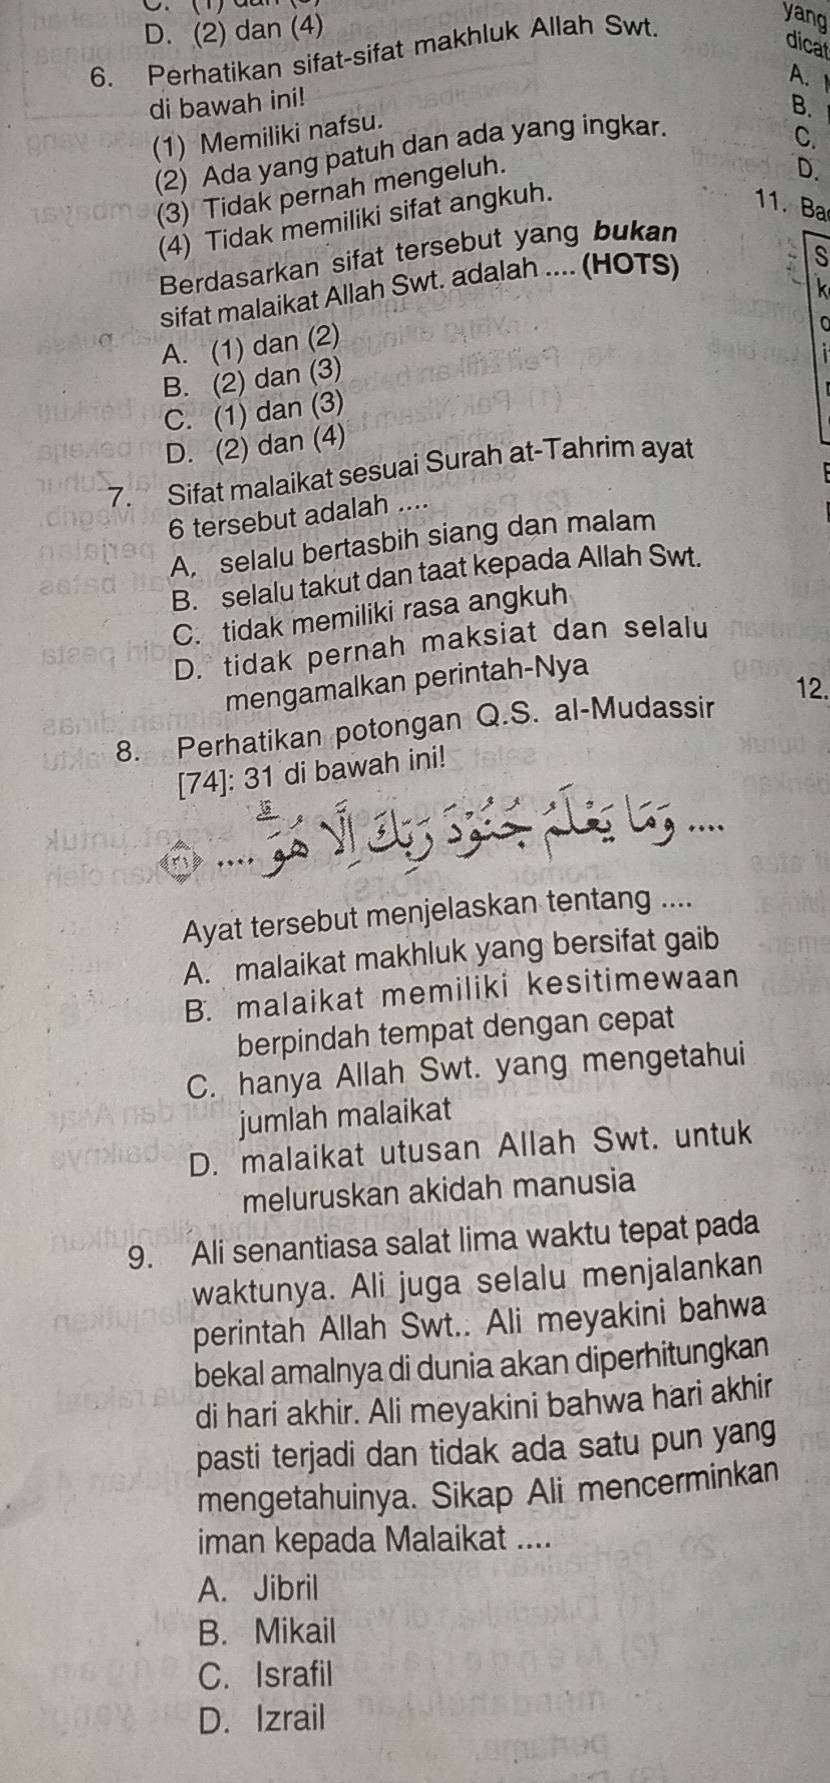 D. (2) dan (4)
6. Perhatikan sifat-sifat makhluk Allah Swt.
di bawah ini!
(1) Memiliki nafsu.
(2) Ada yang patuh dan ada yang ingkar.
(3) Tidak pernah mengeluh.
(4) Tidak memiliki sifat angkuh.
Berdasarkan sifat tersebut yang bukan
sifat malaikat Allah Swt. adalah .... (HOTS)
A. (1) dan (2)
B. (2) dan (3)
C. (1) dan (3)
D. (2) dan (4)
7. Sifat malaikat sesuai Surah at-Tahrim ayat
6 tersebut adalah ....
A. selalu bertasbih siang dan malam
B. selalu takut dan taat kepada Allah Swt.
C. tidak memiliki rasa angkuh
D. tidak pernah maksiat dan selalu
mengamalkan perintah-Nya
8. Perhatikan potongan Q.S. al-Mudassir
[74]: 31 di bawah ini!
.... وَمَا يَعْلَمُ جُنُوْدَ رَبِّكَ اِلَّا هُوَ ۗ .... ﴿٣١﴾
Ayat tersebut menjelaskan tentang ....
A. malaikat makhluk yang bersifat gaib
B. malaikat memiliki kesitimewaan
berpindah tempat dengan cepat
C. hanya Allah Swt. yang mengetahui
jumlah malaikat
D. malaikat utusan Allah Swt. untuk
meluruskan akidah manusia
9. Ali senantiasa salat lima waktu tepat pada
waktunya. Ali juga selalu menjalankan
perintah Allah Swt.. Ali meyakini bahwa
bekal amalnya di dunia akan diperhitungkan
di hari akhir. Ali meyakini bahwa hari akhir
pasti terjadi dan tidak ada satu pun yang
mengetahuinya. Sikap Ali mencerminkan
iman kepada Malaikat ....
A. Jibril
B. Mikail
C. Israfil
D. Izrail
yang
A.
B.
C.
D.
11.
12.